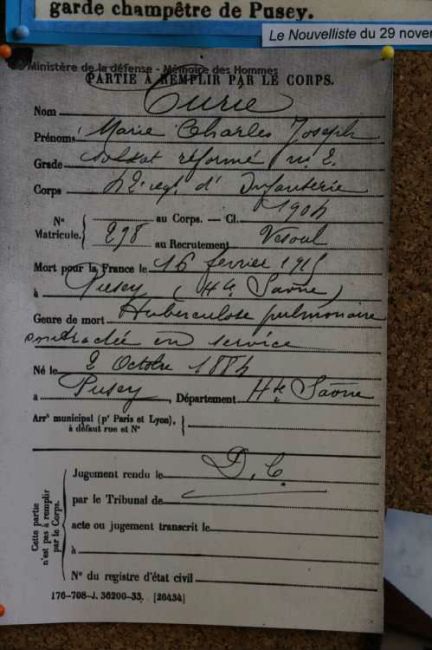 garde champêtre de Pusey.
Le Nouvelliste du 29 nover
Ministère de la défense - Mémoire des Hommes
PARTIE A REMPLIR PAR LE CORPS.
Nom Curie
Prénoms Marie Charles Joseph
Grade soldat réformé n. 2.
Corps 42e reg. d' Infanterie
N° au Corps. — Cl. 1904
Matricule. 298 au Recrutement Vesoul
Mort pour la France le 16 février 1915
à Pusey (Hte Saône)
Genre de mort tuberculose pulmonaire
contractée en service
Né le 2 Octobre 1884
à Pusey, Département Hte Saône
Arrt municipal (pr Paris et Lyon),
à défaut rue et N°
Cette partie n'est pas à remplir par le Corps.
Jugement rendu le D.C.
par le Tribunal de
acte ou jugement transcrit le
à
N° du registre d'état civil
176-708-J. 36200-33. [26434]